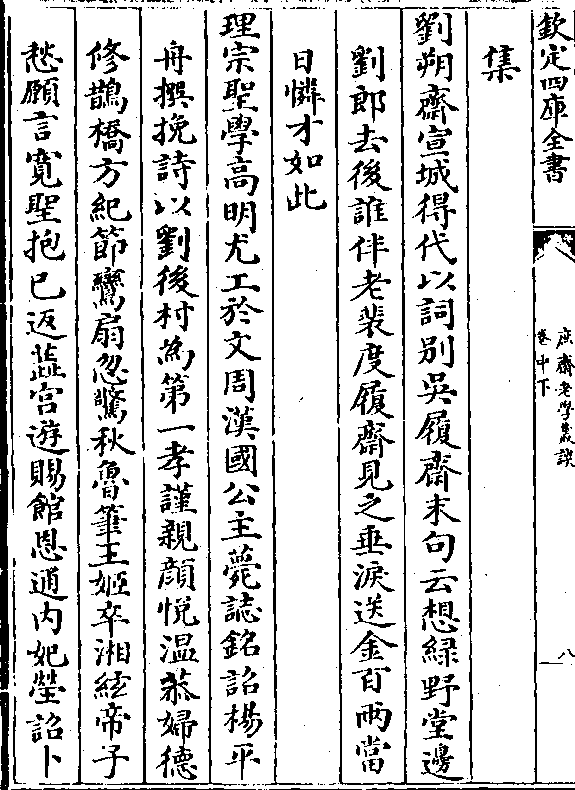 欽定四庫全書
庶齋老學叢談
卷中下
八
集
劉朔齋宣城得代以詞別吳履齋末句云想綠野堂邊
劉郎去後誰伴老裴度履齋見之垂淚送金百兩當
日憐才如此
理宗聖學高明尤工於文周漢國公主薨誌銘詔楊平
舟撰挽詩以劉後村為第一孝謹親顏悅溫恭婦德
修鵲橋方紀節鸞扇忽驚秋魯筆王姬卒湘絃帝子
愁願言寛聖抱已返蕋宫遊賜館恩通內妃塋詔卜